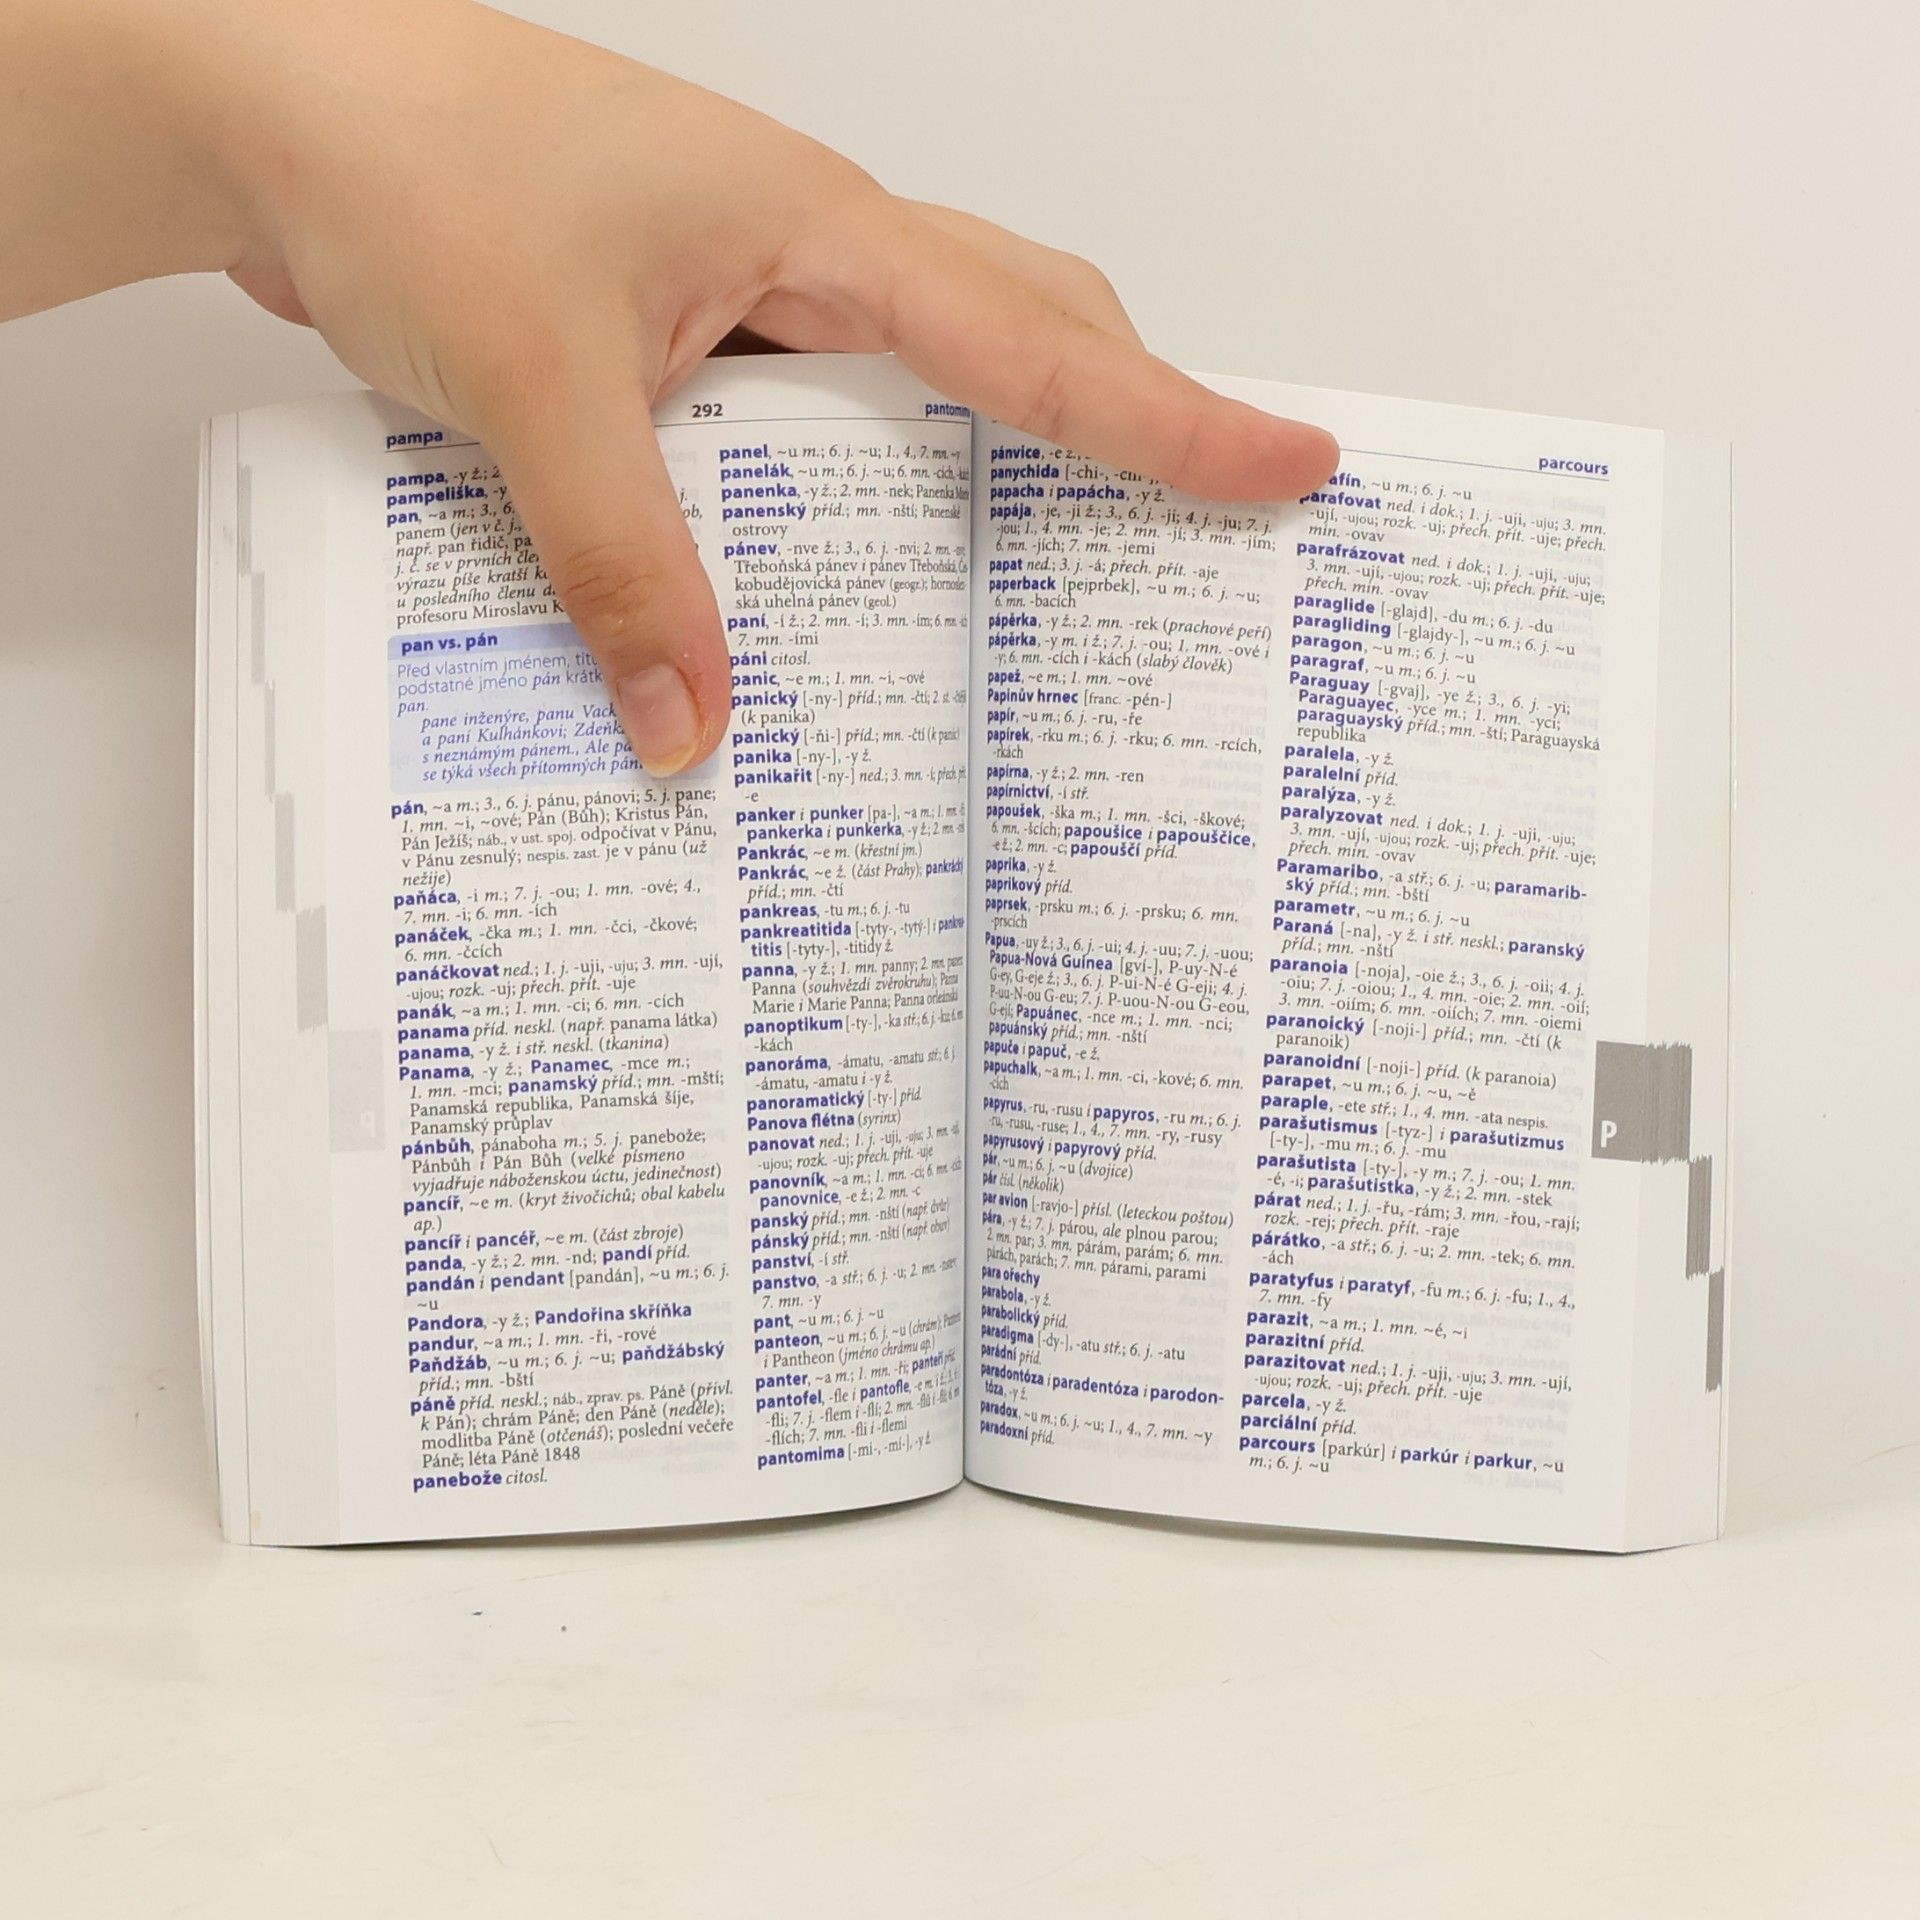 pampa
292
pampa, -y ž.; 2
pampeliška, -y
pan, ~a m.; 3., 6.
panem (jen v č. j.,
např. pan řidič, pa
j. č. se v prvních čle
výrazu píše kratší
u posledního členu
profesoru Miroslavu
pan vs. pán
Před vlastním jménem,
podstatné jméno pán krátk
pan.
pane inženýre, panu Vack
a paní Kulhánkovi; Zdeňk
s neznámým pánem., Ale
se týká všech přítomných
pán, ~a m.; 3., 6. j. pánu, pánovi; 5. j. pane;
1. mn. ~i, ~ové; Pán (Bůh); Kristus Pán,
Pán Ježíš; náb., v ust. spoj. odpočívat v Pánu,
v Pánu zesnulý; nespis. zast. je v pánu (už
nežije)
paňáca, -i m.; 7. j. -ou; 1. mn. -ové; 4.,
7. mn. -i; 6. mn. -ích
panáček, -čka m.; 1. mn. -čci, -čkové;
6. mn. -čcích
panáčkovat ned.; 1. j. -uji, -uju; 3. mn. -ují,
-ujou; rozk. -uj; přech. přít. -uje
panák, ~a m.; 1. mn. -ci; 6. mn. -cích
panama příd. neskl. (např. panama látka)
panama, -y ž. i stř. neskl. (tkanina)
Panama, -y ž.; Panamec, -mce m.;
1. mn. -mci; panamský příd.; mn. -mští;
Panamská republika, Panamská šíje,
Panamský průplav
pánbůh, pánaboha m.; 5. j. panebože;
Pánbůh i Pán Bůh (velké písmeno
vyjadřuje náboženskou úctu, jedinečnost)
pancíř, ~e m. (kryt živočichů; obal kabelu
ap.)
pancíř i pancéř, ~e m. (část zbroje)
panda, -y ž.; 2. mn. -nd; pandí příd.
pandán i pendant [pandán], ~u m.; 6. j.
~u
Pandora, -y ž.; Pandořina skříňka
pandur, ~a m.; 1. mn. -ři, -rové
Paňdžáb, ~u m.; 6. j. ~u; paňdžábský
příd.; mn. -bští
páně příd. neskl.; náb., zprav. ps. Páně (přivl.
k Pán); chrám Páně; den Páně (neděle);
modlitba Páně (otčenáš); poslední večeře
Páně; léta Páně 1848
panebože citosl.
panel, ~u m.; 6. j. ~u; 1., 4., 7. mn. ~y
panelák, ~u m.; 6. j. ~u; 6. mn. -cích,
panenka, -y ž.; 2. mn. -nek; Panenka
panenský příd.; mn. -nští; Panenské
ostrovy
pánev, -nve ž.; 3., 6. j. -nvi; 2. mn.
Třeboňská pánev i pánev Třeboňská,
kobudějovická pánev (geogr.);
ská uhelná pánev (geol.)
paní, -í ž.; 2. mn. -í; 3. mn. -ím; 6. mn.
7. mn. -ími
páni citosl.
panic, ~e m.; 1. mn. ~i, ~ové
panický [-ny-] příd.; mn. -čtí; 2. st.
(k panika)
panický [-ňi-] příd.; mn. -čtí (k panic)
panika [-ny-], -y ž.
panikařit [-ny-] ned.; 3. mn. -í; přech. př.
-e
panker i punker [pa-], ~a m.; 1. mn.
pankerka i punkerka, -y ž.; 2. mn.
Pankrác, ~e m. (křestní jm.)
Pankrác, ~e ž. (část Prahy);
příd.; mn. -čtí
pankreas, -tu m.; 6. j. -tu
pankreatitida [-tyty-, -tytý-] i
titis [-tyty-], -titidy ž.
panna, -y ž.; 1. mn. panny; 2. mn.
Panna (souhvězdí zvěrokruhu); Panna
Marie i Marie Panna; Panna orleánská
panoptikum [-ty-], -ka stř.; 6. j.
-kách
panoráma, -ámatu, -amatu stř.; 6. j.
-ámatu, -amatu i -y ž.
panoramatický [-ty-] příd.
Panova flétna (syrinx)
panovat ned.; 1. j. -uji, -uju; 3. mn.
-ujou; rozk. -uj; přech. přít. -uje
panovník, ~a m.; 1. mn. -ci; 6. mn.
panovnice, -e ž.; 2. mn. -c
panský příd.; mn. -nští (např. dvůr)
pánský příd.; mn. -nští (např. obuv)
panství, -í stř.
panstvo, -a stř.; 6. j. -u; 2. mn.
7. mn. -y
pant, ~u m.; 6. j. ~u
panteon, ~u m.; 6. j. ~u (chrám);
i Pantheon (jméno chrámu ap.)
panter, ~a m.; 1. mn. -ři; panteří příd.
pantofel, -fle i pantofle, -e m. i ž.;
-fli; 7. j. -flem i -flí; 2. mn.
-flích; 7. mn. -fli i -flemi
pantomima [-mi-, -mí-], -y ž.
parcours
pánvice, -e ž.,
panychida [-chi-,
papacha i papácha, -y ž.
papája, -je, -ji ž.; 3., 6. j. -ji; 4. j. -ju; 7. j.
-jou; 1., 4. mn. -je; 2. mn. -jí; 3. mn. -jím;
6. mn. -jích; 7. mn. -jemi
papat ned.; 3. j. -á; přech. přít. -aje
paperback [pejprbek], ~u m.; 6. j. ~u;
6. mn. -bacích
pápěrka, -y ž.; 2. mn. -rek (prachové peří)
pápěrka, -y m. i ž.; 7. j. -ou; 1. mn. -ové i
-y; 6. mn. -cích i -kách (slabý člověk)
papež, ~e m.; 1. mn. ~ové
Papinův hrnec [franc. -pén-]
papír, ~u m.; 6. j. -ru, -ře
papírek, -rku m.; 6. j. -rku; 6. mn. -rcích,
-rkách
papírna, -y ž.; 2. mn. -ren
papírnictví, -í stř.
papoušek, -ška m.; 1. mn. -šci, -škové;
6. mn. -šcích; papoušice i papouščice,
-e ž.; 2. mn. -c; papouščí příd.
paprika, -y ž.
paprikový příd.
paprsek, -prsku m.; 6. j. -prsku; 6. mn.
-prscích
Papua, -uy ž.; 3., 6. j. -ui; 4. j. -uu; 7. j. -uou;
Papua-Nová Guinea [gví-], P-uy-N-é
G-ey, G-eje ž.; 3., 6. j. P-ui-N-é G-eji; 4. j.
P-uu-N-ou G-eu; 7. j. P-uou-N-ou G-eou,
G-ejí; Papuánec, -nce m.; 1. mn. -nci;
papuánský příd.; mn. -nští
papuče i papuč, -e ž.
papuchalk, ~a m.; 1. mn. -ci, -kové; 6. mn.
-cích
papyrus, -ru, -rusu i papyros, -ru m.; 6. j.
-ru, -rusu, -ruse; 1., 4., 7. mn. -ry, -rusy
papyrusový i papyrový příd.
pár, ~u m.; 6. j. ~u (dvojice)
pár čísl. (několik)
par avion [-ravjo-] přísl. (leteckou poštou)
pára, -y ž.; 7. j. párou, ale plnou parou;
2. mn. par; 3. mn. párám, parám; 6. mn.
párách, parách; 7. mn. párami, parami
para ořechy
parabola, -y ž.
parabolický příd.
paradigma [-dy-], -atu stř.; 6. j. -atu
parádní příd.
paradontóza i paradentóza i parodon-
tóza, -y ž.
paradox, ~u m.; 6. j. ~u; 1., 4., 7. mn. ~y
paradoxní příd.
afín, ~u m.; 6. j. ~u
parafovat ned. i dok.; 1. j. -uji, -uju; 3. mn.
-ují, -ujou; rozk. -uj; přech. přít. -uje; přech.
min. -ovav
parafrázovat ned. i dok.; 1. j. -uji, -uju;
3. mn. -ují, -ujou; rozk. -uj; přech. přít. -uje;
přech. min. -ovav
paraglide [-glajd], -du m.; 6. j. -du
paragliding [-glajdy-], ~u m.; 6. j. ~u
paragon, ~u m.; 6. j. ~u
paragraf, ~u m.; 6. j. ~u
Paraguay [-gvaj], -ye ž.; 3., 6. j. -yi;
Paraguayec, -yce m.; 1. mn. -yci;
paraguayský příd.; mn. -ští; Paraguayská
republika
paralela, -y ž.
paralelní příd.
paralýza, -y ž.
paralyzovat ned. i dok.; 1. j. -uji, -uju;
3. mn. -ují, -ujou; rozk. -uj; přech. přít. -uje;
přech. min. -ovav
Paramaribo, -a stř.; 6. j. -u; paramarib-
ský příd.; mn. -bští
parametr, ~u m.; 6. j. ~u
Paraná [-na], -y ž. i stř. neskl.; paranský
příd.; mn. -nští
paranoia [-noja], -oie ž.; 3., 6. j. -oii; 4. j.
-oiu; 7. j. -oiou; 1., 4. mn. -oie; 2. mn. -oií;
3. mn. -oiím; 6. mn. -oiích; 7. mn. -oiemi
paranoický [-noji-] příd.; mn. -čtí (k
paranoik)
paranoidní [-noji-] příd. (k paranoia)
parapet, ~u m.; 6. j. ~u, ~ě
paraple, -ete stř.; 1., 4. mn. -ata nespis.
parašutismus [-tyz-] i parašutizmus
[-ty-], -mu m.; 6. j. -mu
parašutista [-ty-], -y m.; 7. j. -ou; 1. mn.
-é, -i; parašutistka, -y ž.; 2. mn. -stek
párat ned.; 1. j. -řu, -rám; 3. mn. -řou, -rají;
rozk. -rej; přech. přít. -raje
párátko, -a stř.; 6. j. -u; 2. mn. -tek; 6. mn.
-ách
paratyfus i paratyf, -fu m.; 6. j. -fu; 1., 4.,
7. mn. -fy
parazit, ~a m.; 1. mn. ~é, ~i
parazitní příd.
parazitovat ned.; 1. j. -uji, -uju; 3. mn. -ují,
-ujou; rozk. -uj; přech. přít. -uje
parcela, -y ž.
parciální příd.
parcours [parkúr] i parkúr i parkur, ~u
m.; 6. j. ~u
P